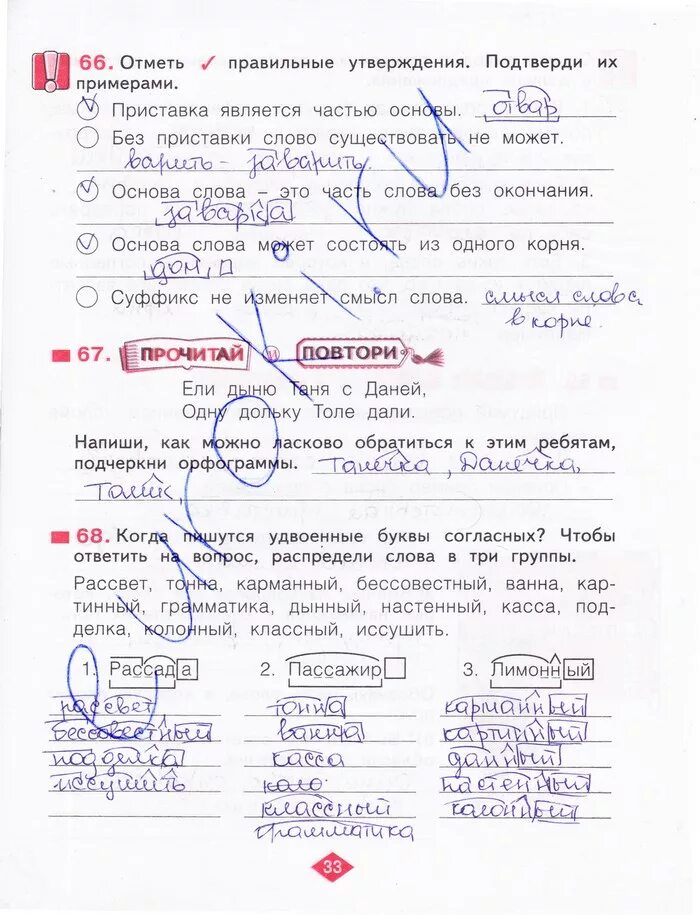 66. Отметь ✓ правильные утверждения. Подтверди их
примерами.
Приставка является частью основы. отвар
Без приставки слово существовать не может.
варить - заварить.
Основа слова – это часть слова без окончания.
заварка
Основа слова может состоять из одного корня.
дом,
Суффикс не изменяет смысл слова. смысл слова
в корне.
67. ПРОЧИТАЙ И ПОВТОРИ
Ели дыню Таня с Даней,
Одну дольку Толе дали.
Напиши, как можно ласково обратиться к этим ребятам,
подчеркни орфограммы. Танечка, Данечка,
Толик,
68. Когда пишутся удвоенные буквы согласных? Чтобы
ответить на вопрос, распредели слова в три группы.
Рассвет, тонна, карманный, бессовестный, ванна, кар-
тинный, грамматика, дынный, настенный, касса, под-
делка, колонный, классный, иссушить.
1. Рассада 2. Пассажир 3. Лимонный
рассвет тонна карманный
бессовестный ванна картинный
подделка касса
иссушить коло настенный
классный колонный
грамматика
33